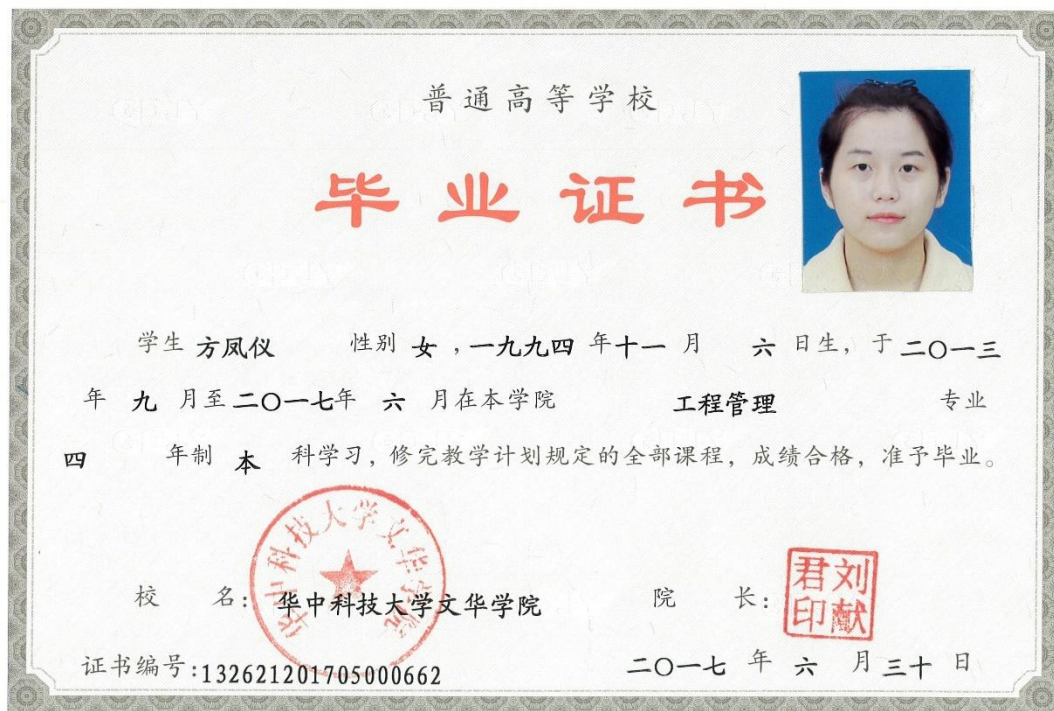 普通高等学校
毕业证书
学生 方凤仪 性别 女 , 一九九四 年 十一 月 六 日生, 于 二〇一三
年 九 月至 二〇一七年 六 月在本学院 工程管理 专业
四 年制 本 科学习, 修完教学计划规定的全部课程, 成绩合格, 准予毕业。
华中科技大学文华学院
校 名: 华中科技大学文华学院 院 长: 刘献君印
证书编号:132621201705000662 二〇一七 年 六 月 三十 日